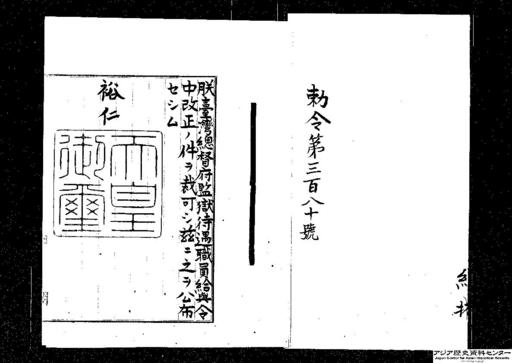 勅令第三百八十號
朕臺灣總督府監獄待遇職員給與令
中改正ノ件ヲ裁可シ茲ニ之ヲ公布
セシム
裕仁
天皇
御璽
アジア歴史資料センター
Japan Center for Asian Historical Records